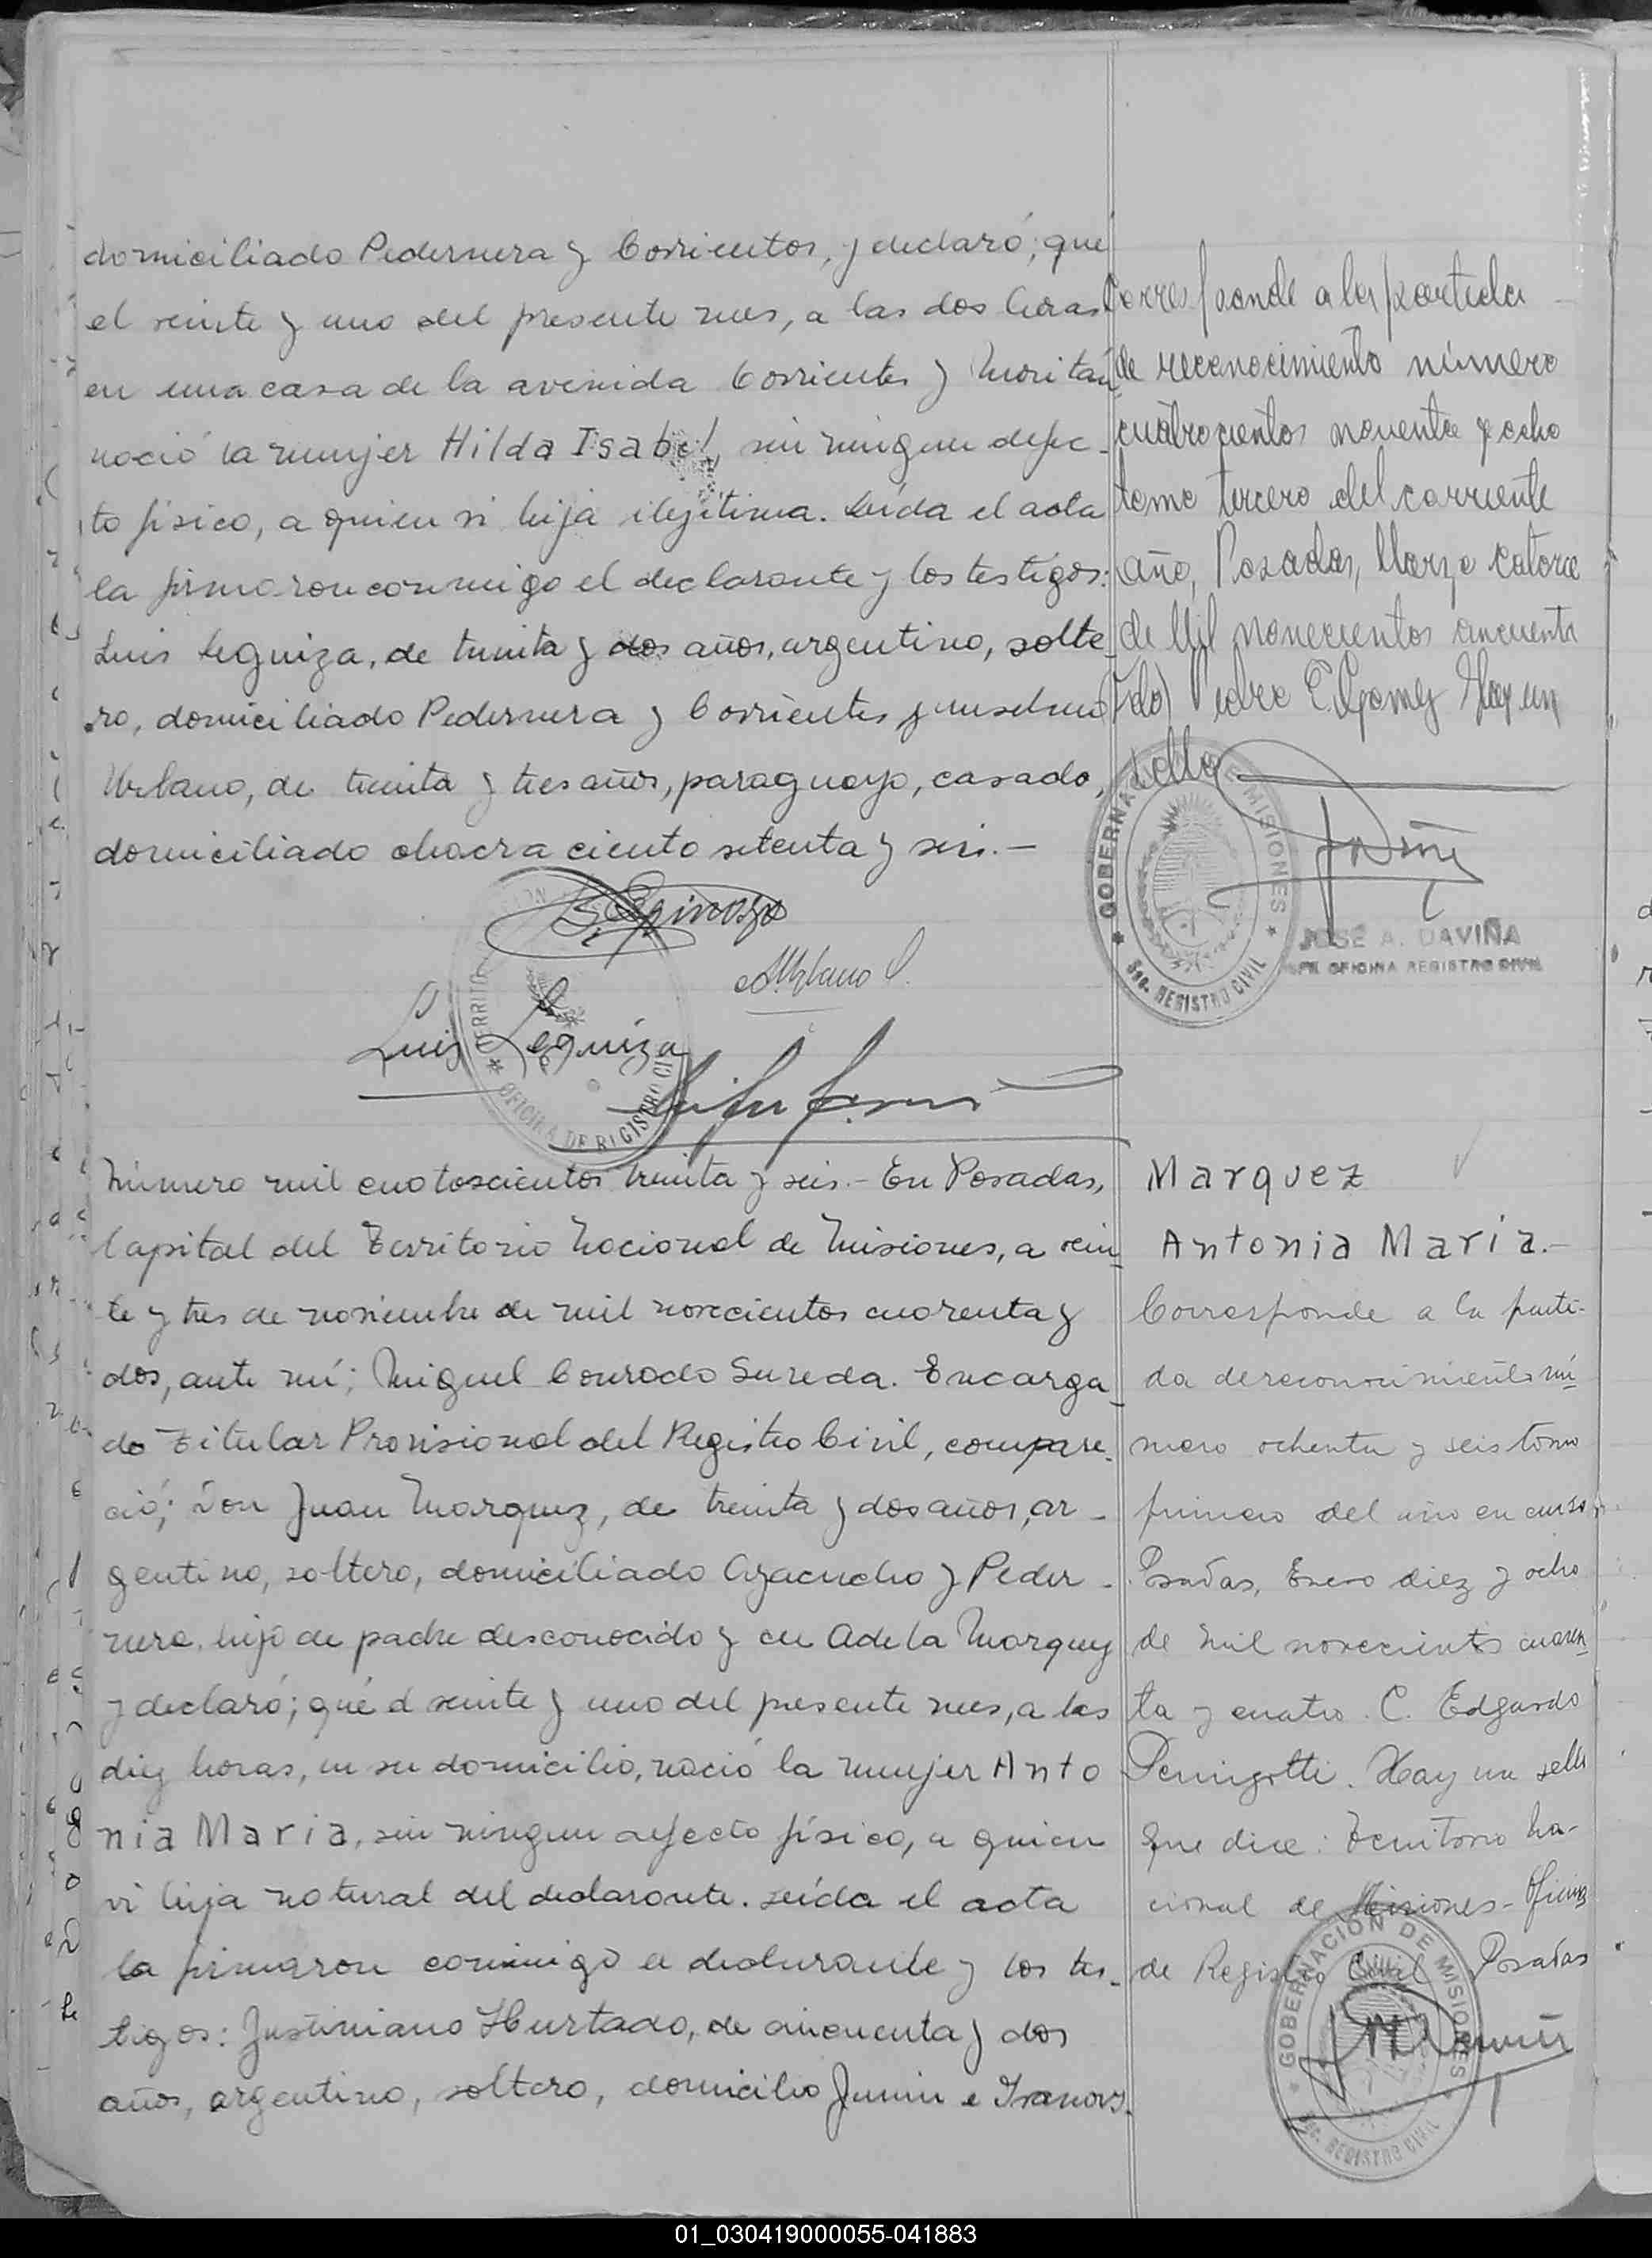 domiciliado Pedernera y Corrientes, y declaró; que
el veinte y uno del presente mes, a las dos horas
en una casa de la avenida Corrientes y
nació la mujer Hilda Isabel, sin ningun defec-
to físico, a quien vi hija ilegitima. Leída el acta
la firmaron conmigo el declarante y los testigos:
Luis Leguiza, de treinta y dos años, argentino, solte-
ro, domiciliado Pedernera y Corrientes y Anselmo
Urbano, de treinta y tres años, paraguayo, casado,
domiciliado chacra ciento setenta y seis.-
Espinoza
AUrbano
Luis Leguiza
TERRITORIO
OFICINA DE REGISTRO CIVIL
Corresponde a la partida
de reconocimiento número
cuatrocientos noventa y ocho
tomo tercero del corriente
año, Posadas, Marzo catorce
de Mil novecientos cincuenta
(Fdo) Pedro E Gomez Hay un
sello
GOBERNACIÓN DE MISIONES
Sec. REGISTRO CIVIL
JOSÉ A. DAVIÑA
JEFE OFICINA REGISTRO CIVIL
Número mil cuatoscientos treinta y seis.- En Posadas,
Capital del Territorio Nacional de Misiones, a vein
te y tres de noviembre de mil novecientos cuarenta y
dos, ante mí; Miguel Conrado Sureda. Encarga
do Titular Provisional del Registro Civil, compare-
ció; Don Juan Marquez, de treinta y dos años, ar-
gentino, soltero, domiciliado Ayacucho y Peder-
nera, hijo de padre desconocido y de Adela Marquez
y declaró; qué el veinte y uno del presente mes, a las
diez horas, en su domicilio, nació la mujer Anto
nia Maria, sin ningun defecto físico, a quien
vi hija natural del declarante. Leída el acta
la firmaron conmigo el declarante y los tes-
tigos: Justiniano Hurtado, de cincuenta y dos
años, argentino, soltero, domicilio Junin e
Marquez
Antonia Maria.-
Corresponde a la parti-
da de reconocimiento nú
mero ochenta y seis tomo
primero del año en curso
Posadas, Enero diez y ocho
de mil novecientos cuaren
ta y cuatro. C. Edgardo
Hay un sello
que dice: Territorio Na-
cional de Misiones- Oficina
de Registro Civil Posadas
GOBERNACIÓN DE MISIONES
SEC. REGISTRO CIVIL
01_030419000055-041883